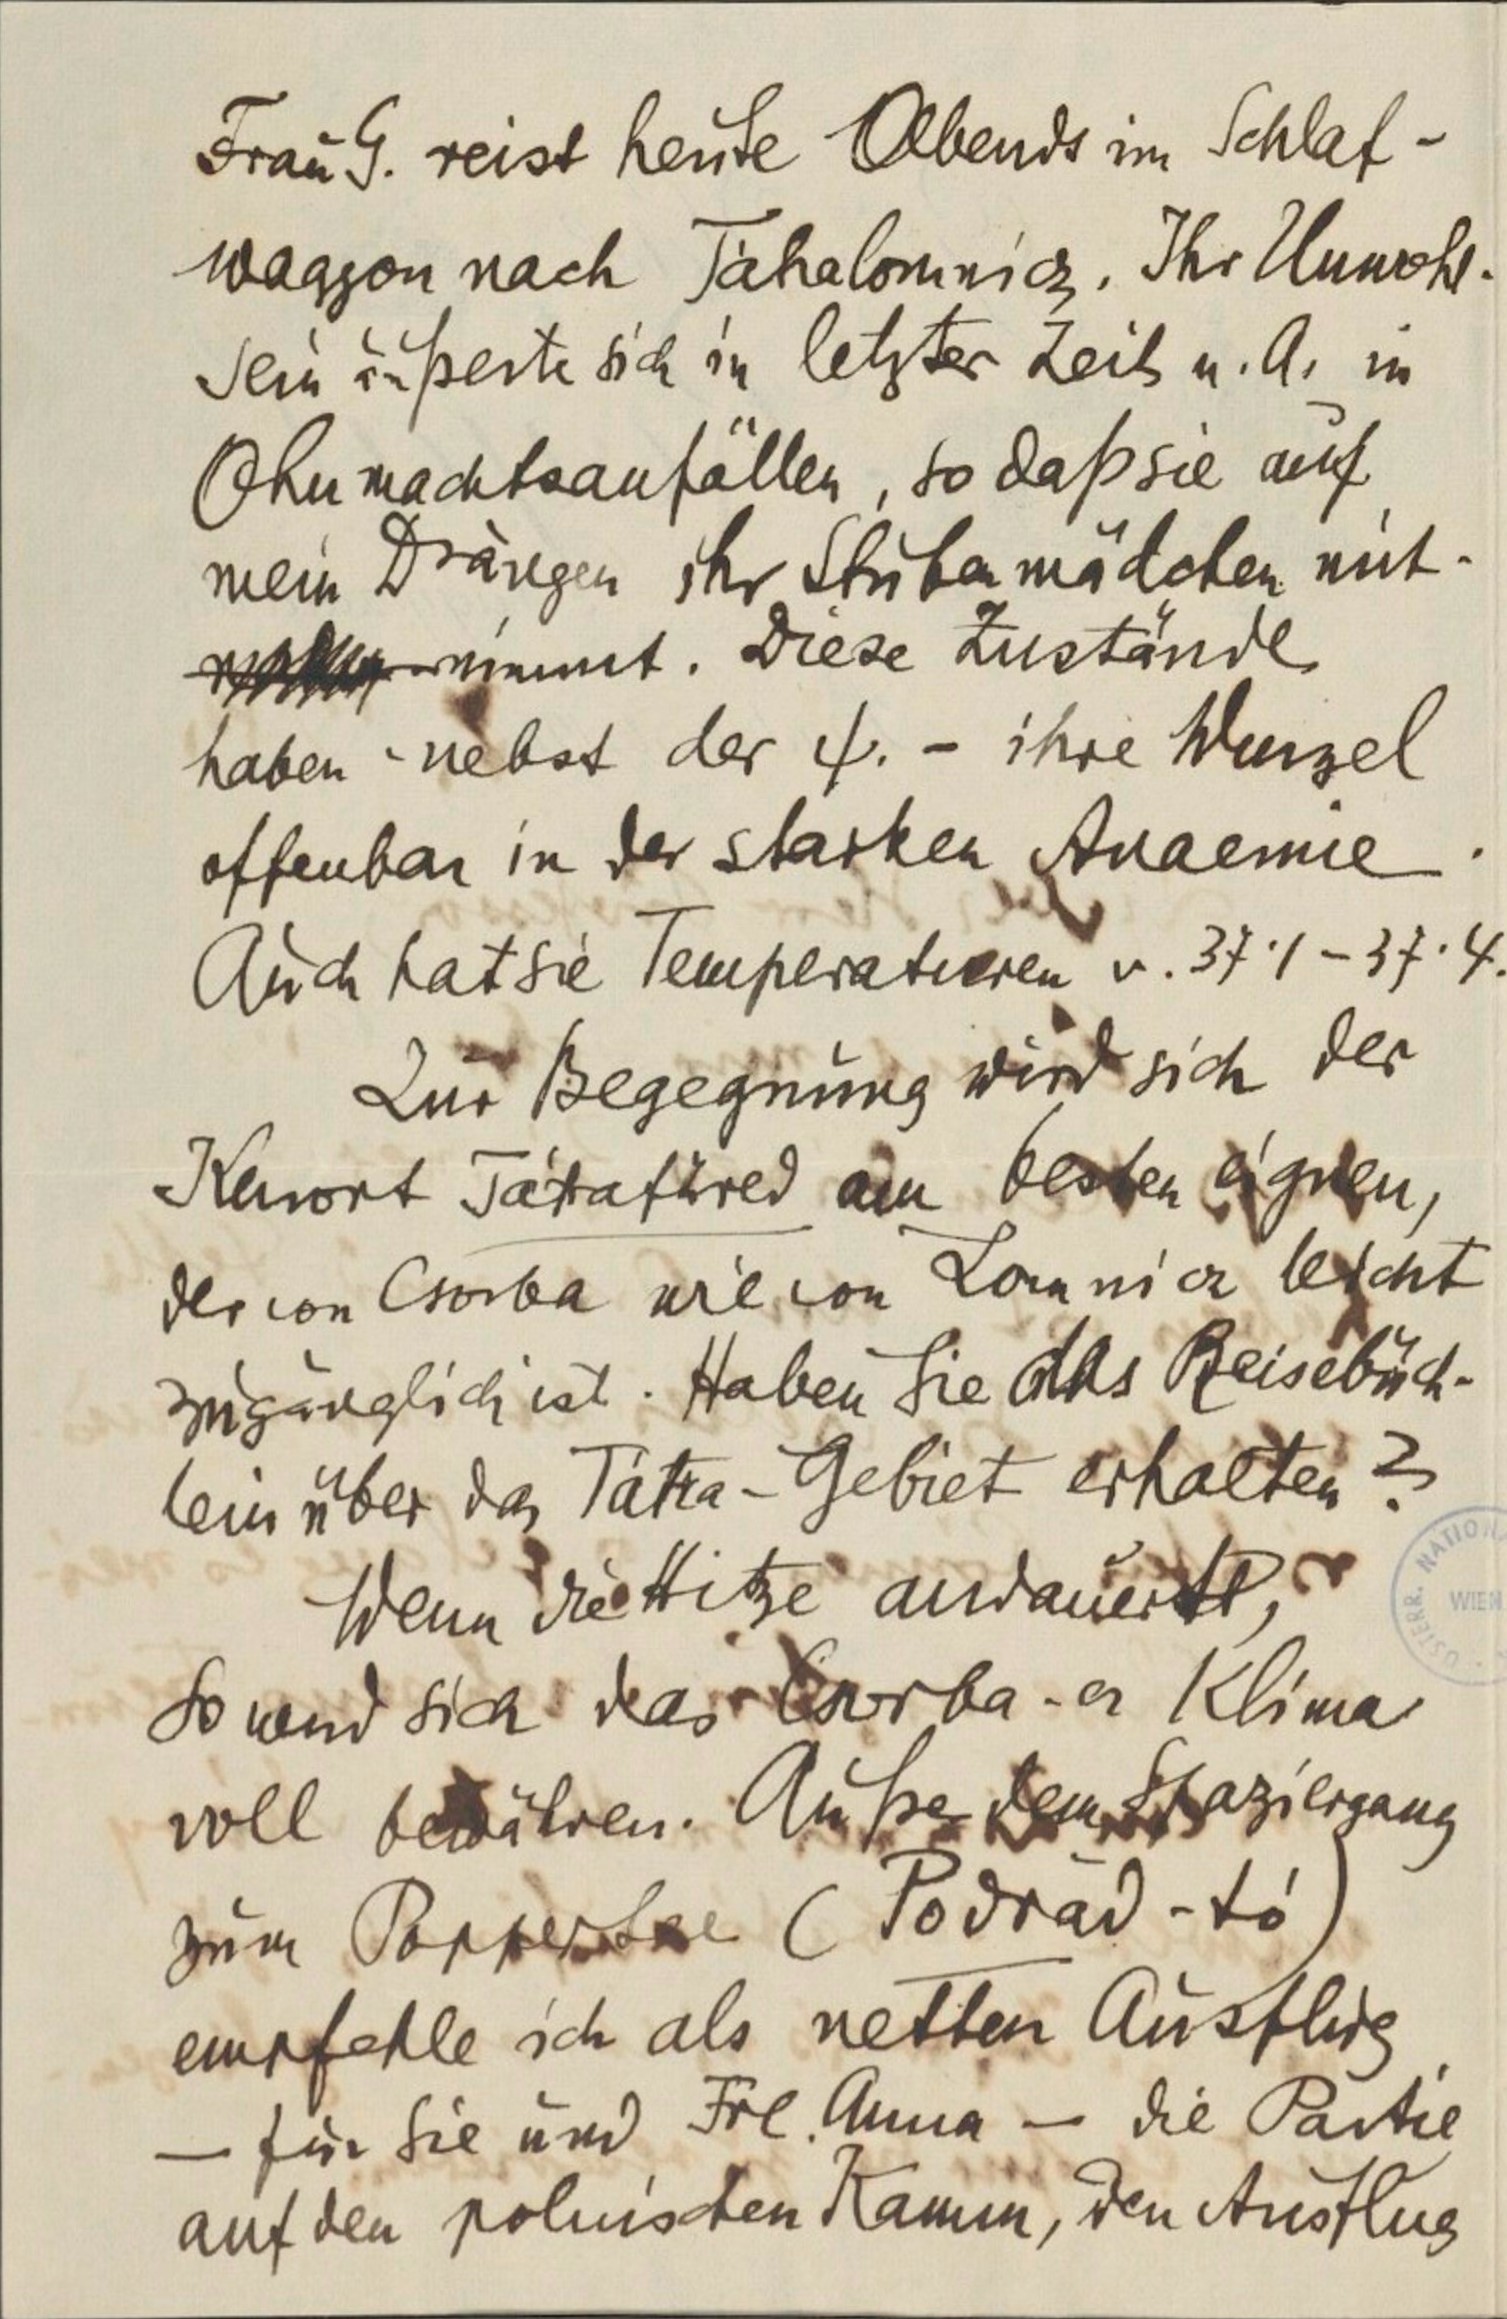 Frau G. reist heute Abends im Schlaf-
waggon nach Tátralomnicz. Ihr Unwohl-
sein äußerte sich in letzter Zeit u. A. in
Ohnmachtsanfällen, so daß sie auf
mein Drängen ihr Stubenmädchen mit-
nimmt. Diese Zustände
haben - nebst der ψ. - ihre Wurzel
offenbar in der starken Anaemie.
Auch hat sie Temperaturen v. 37·1 - 37·4.
Zur Begegnung wird sich der
Kurort Tátrafüred am besten eignen,
der von Csorba wie von Lomnicz leicht
zugänglich ist. Haben Sie das Reisebüch-
lein über das Tátra-Gebiet erhalten?
Wenn die Hitze andauerte,
so wird sich das Csorba-er Klima
voll bewähren. Außer dem Spaziergang
zum Poppersee (Podrád-tó)
empfehle ich als netten Ausflug
— für Sie und Frl. Anna — die Partie
auf den polnischen Kamm, den Ausflug
ÖSTERR. NATION
WIEN